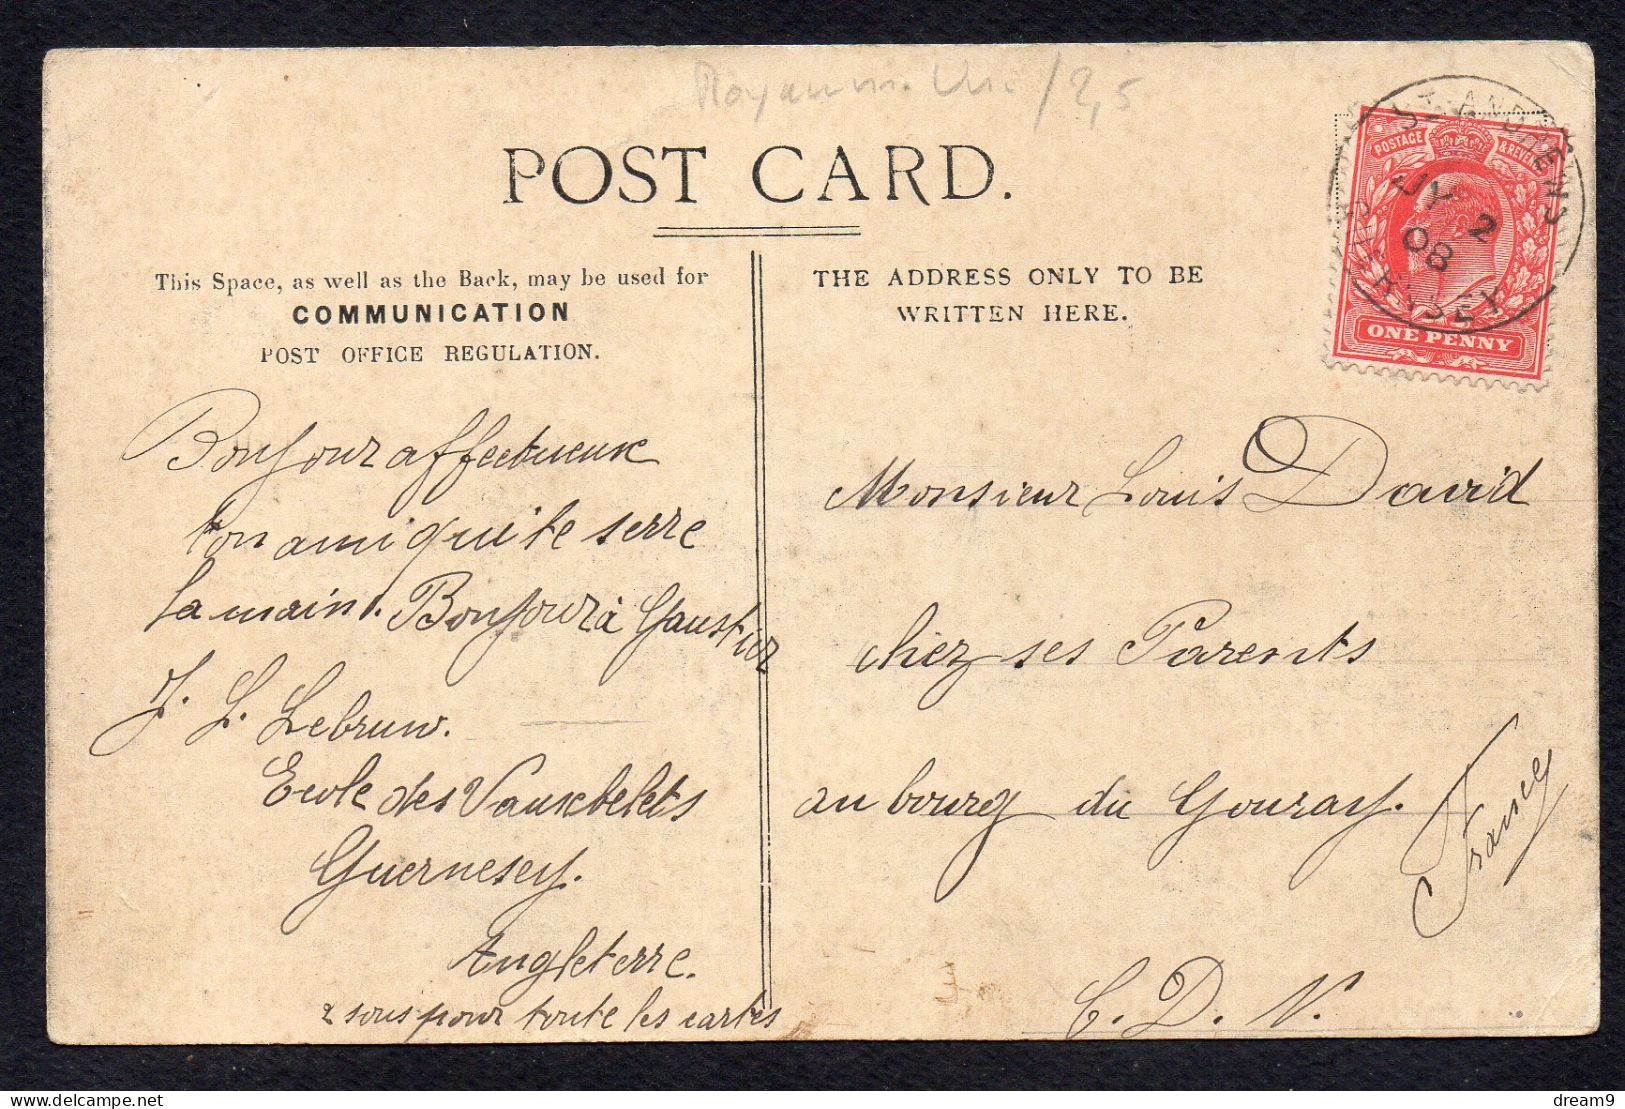 Royaume Uni /2,5
POST CARD.
This Space, as well as the Back, may be used for
COMMUNICATION
POST OFFICE REGULATION.
THE ADDRESS ONLY TO BE
WRITTEN HERE.
POSTAGE & REVENUE
ONE PENNY
ST ANDREWS
JY 2
08
GUERNSEY
Bonjour affectueux
ton ami qui te serre
la main. Bonjour à Gaustier
J. L. Lebrun.
Ecole des Vauxbelets
Guernesey.
Angleterre.
2 sous pour toute les cartes
Monsieur Louis David
chez ses Parents
au bourg du Gouray.
France
C. D. N.
delcampe.net
dream9